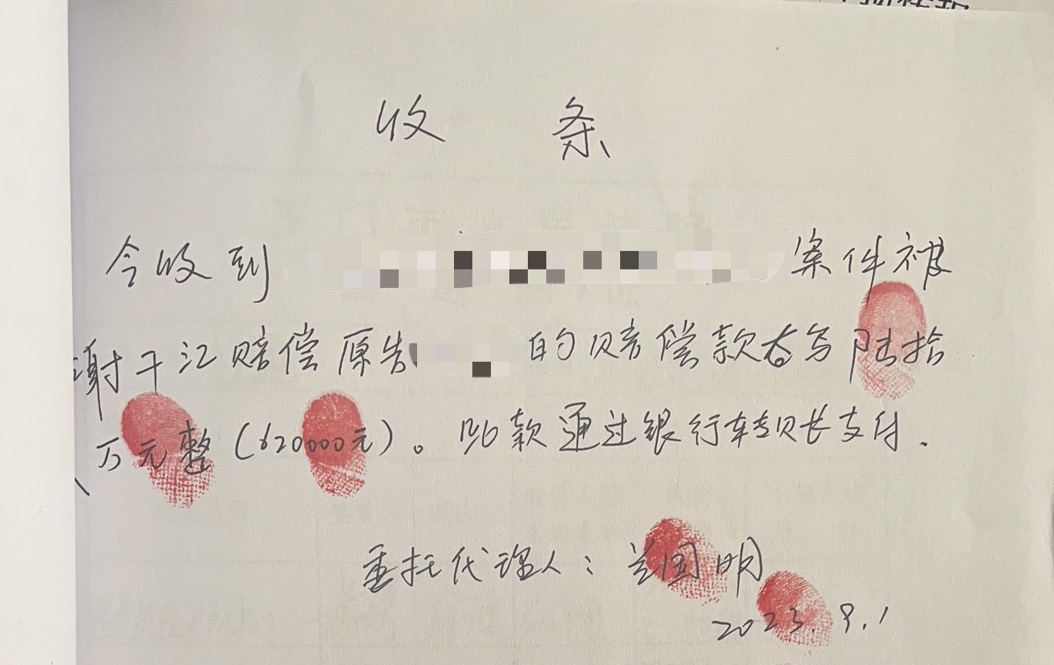 收 条
今收到 案件被
谢于江赔偿原告 的赔偿款大写陆拾
万元整(620000元)。此款通过银行转账支付.
委托代理人:兰国明
2023.9.1